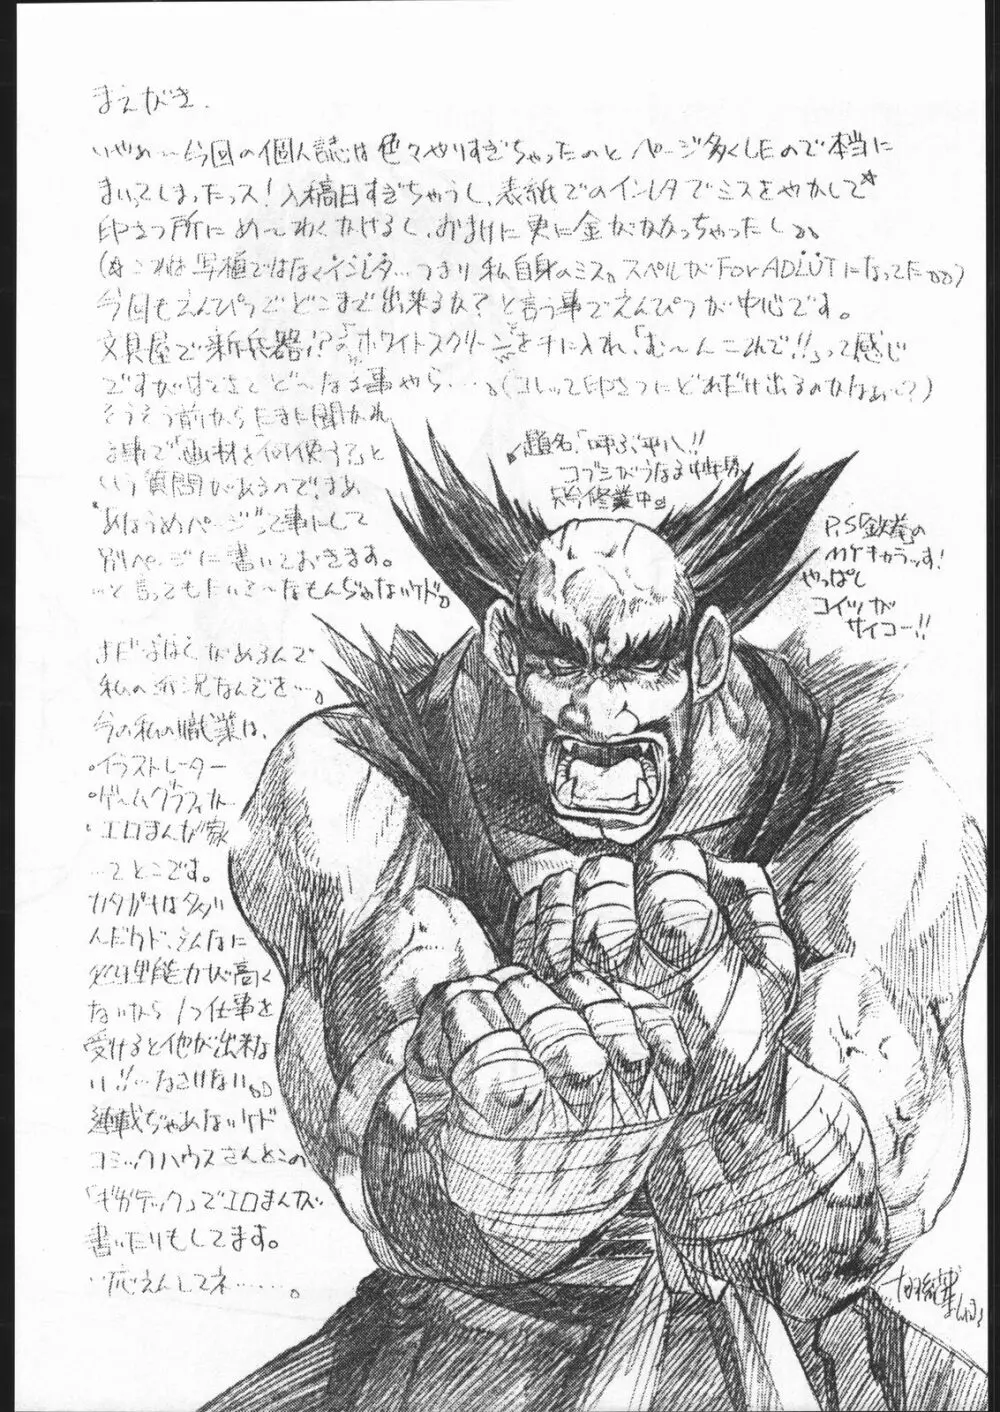 まえがき.
いやぁ〜今回の個人誌は色々やりすぎちゃったのと ページ多くしたので本当に
まいってしまったっス!入稿日すぎちゃうし、表紙でのインレタでミスをやかして☆
印さつ所にめ〜わくかけるし、おまけに更に金がかかっちゃったしよ
(☆これは写植ではなくインレタ…つまり私自身のミス。スペルがFor ADLUTになってた。。)
今回もえんぴつでどこまで出来るか?と言う事でえんぴつが中心です。
文具屋で新兵器!?の「ホワイトスクリーン」を手に入れ、「む〜んこれで!!」って感じ
ですがはてさてど〜なる事やら……。(コレって印さつにどれだけ出るのかなぁ〜?)
そうそう前からたまに聞かれ
る事で「画材を何使う?」と
いう質問があるので、まぁ
"あほうめページ"って事にして
別ページに書いておきます。
…と言ってもたいそ〜なもんぢゃないケド。
まだよはくがあるんで
私の近況なんぞを…。
今の私の職業は、
・イラストレーター
・ゲームグラフィッカー
・エロまんが家
…てとこです。
カタガキは多い
んだケド、そんなに
処理能力が高く
ないから1つ仕事を
受けると他が出来な
い!!…なさけない。。
連載ぢゃあないケド
コミックハウスさんとこの
「ギガテック」でエロまんが
書いたりもしてます。
…応えんしてネ……。
題名「叫ぶ平八!!
コブシがうなる
只今修業中。
P.S「鉄拳」の
MYキャラっす!
やっぱし
コイツが
サイコー!!